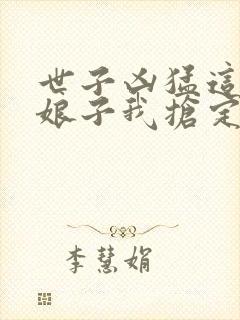 世子凶猛這
娘子我搶定
李慧娟